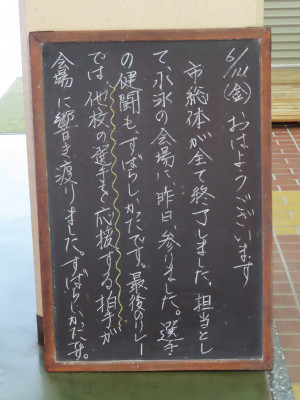 6/14(金)おはようございます
市総体が全て終了しました。担当とし
て、水泳の会場に昨日、参りました。選手
の健闘も、すばらしかったです。最後のリレー
では、他校の選手を応援する拍手が
会場に響き渡りました。すばらしかったです。